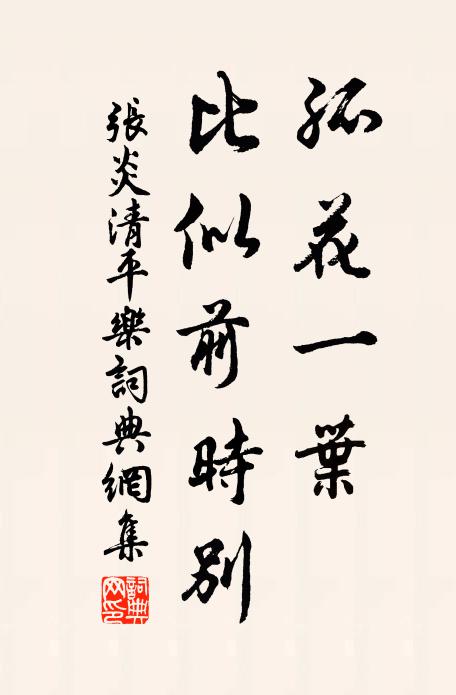 孤花一葉
比似前時別
張炎清平樂詞典網集
詞典
网印